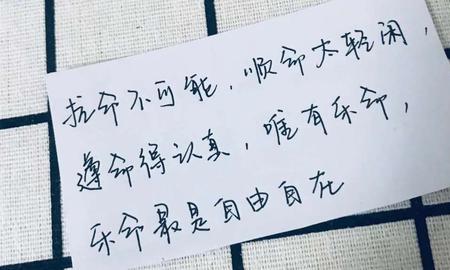 抗命不可能，顺命太轻闲，
遵命得认真，唯有乐命，
乐命最是自由自在